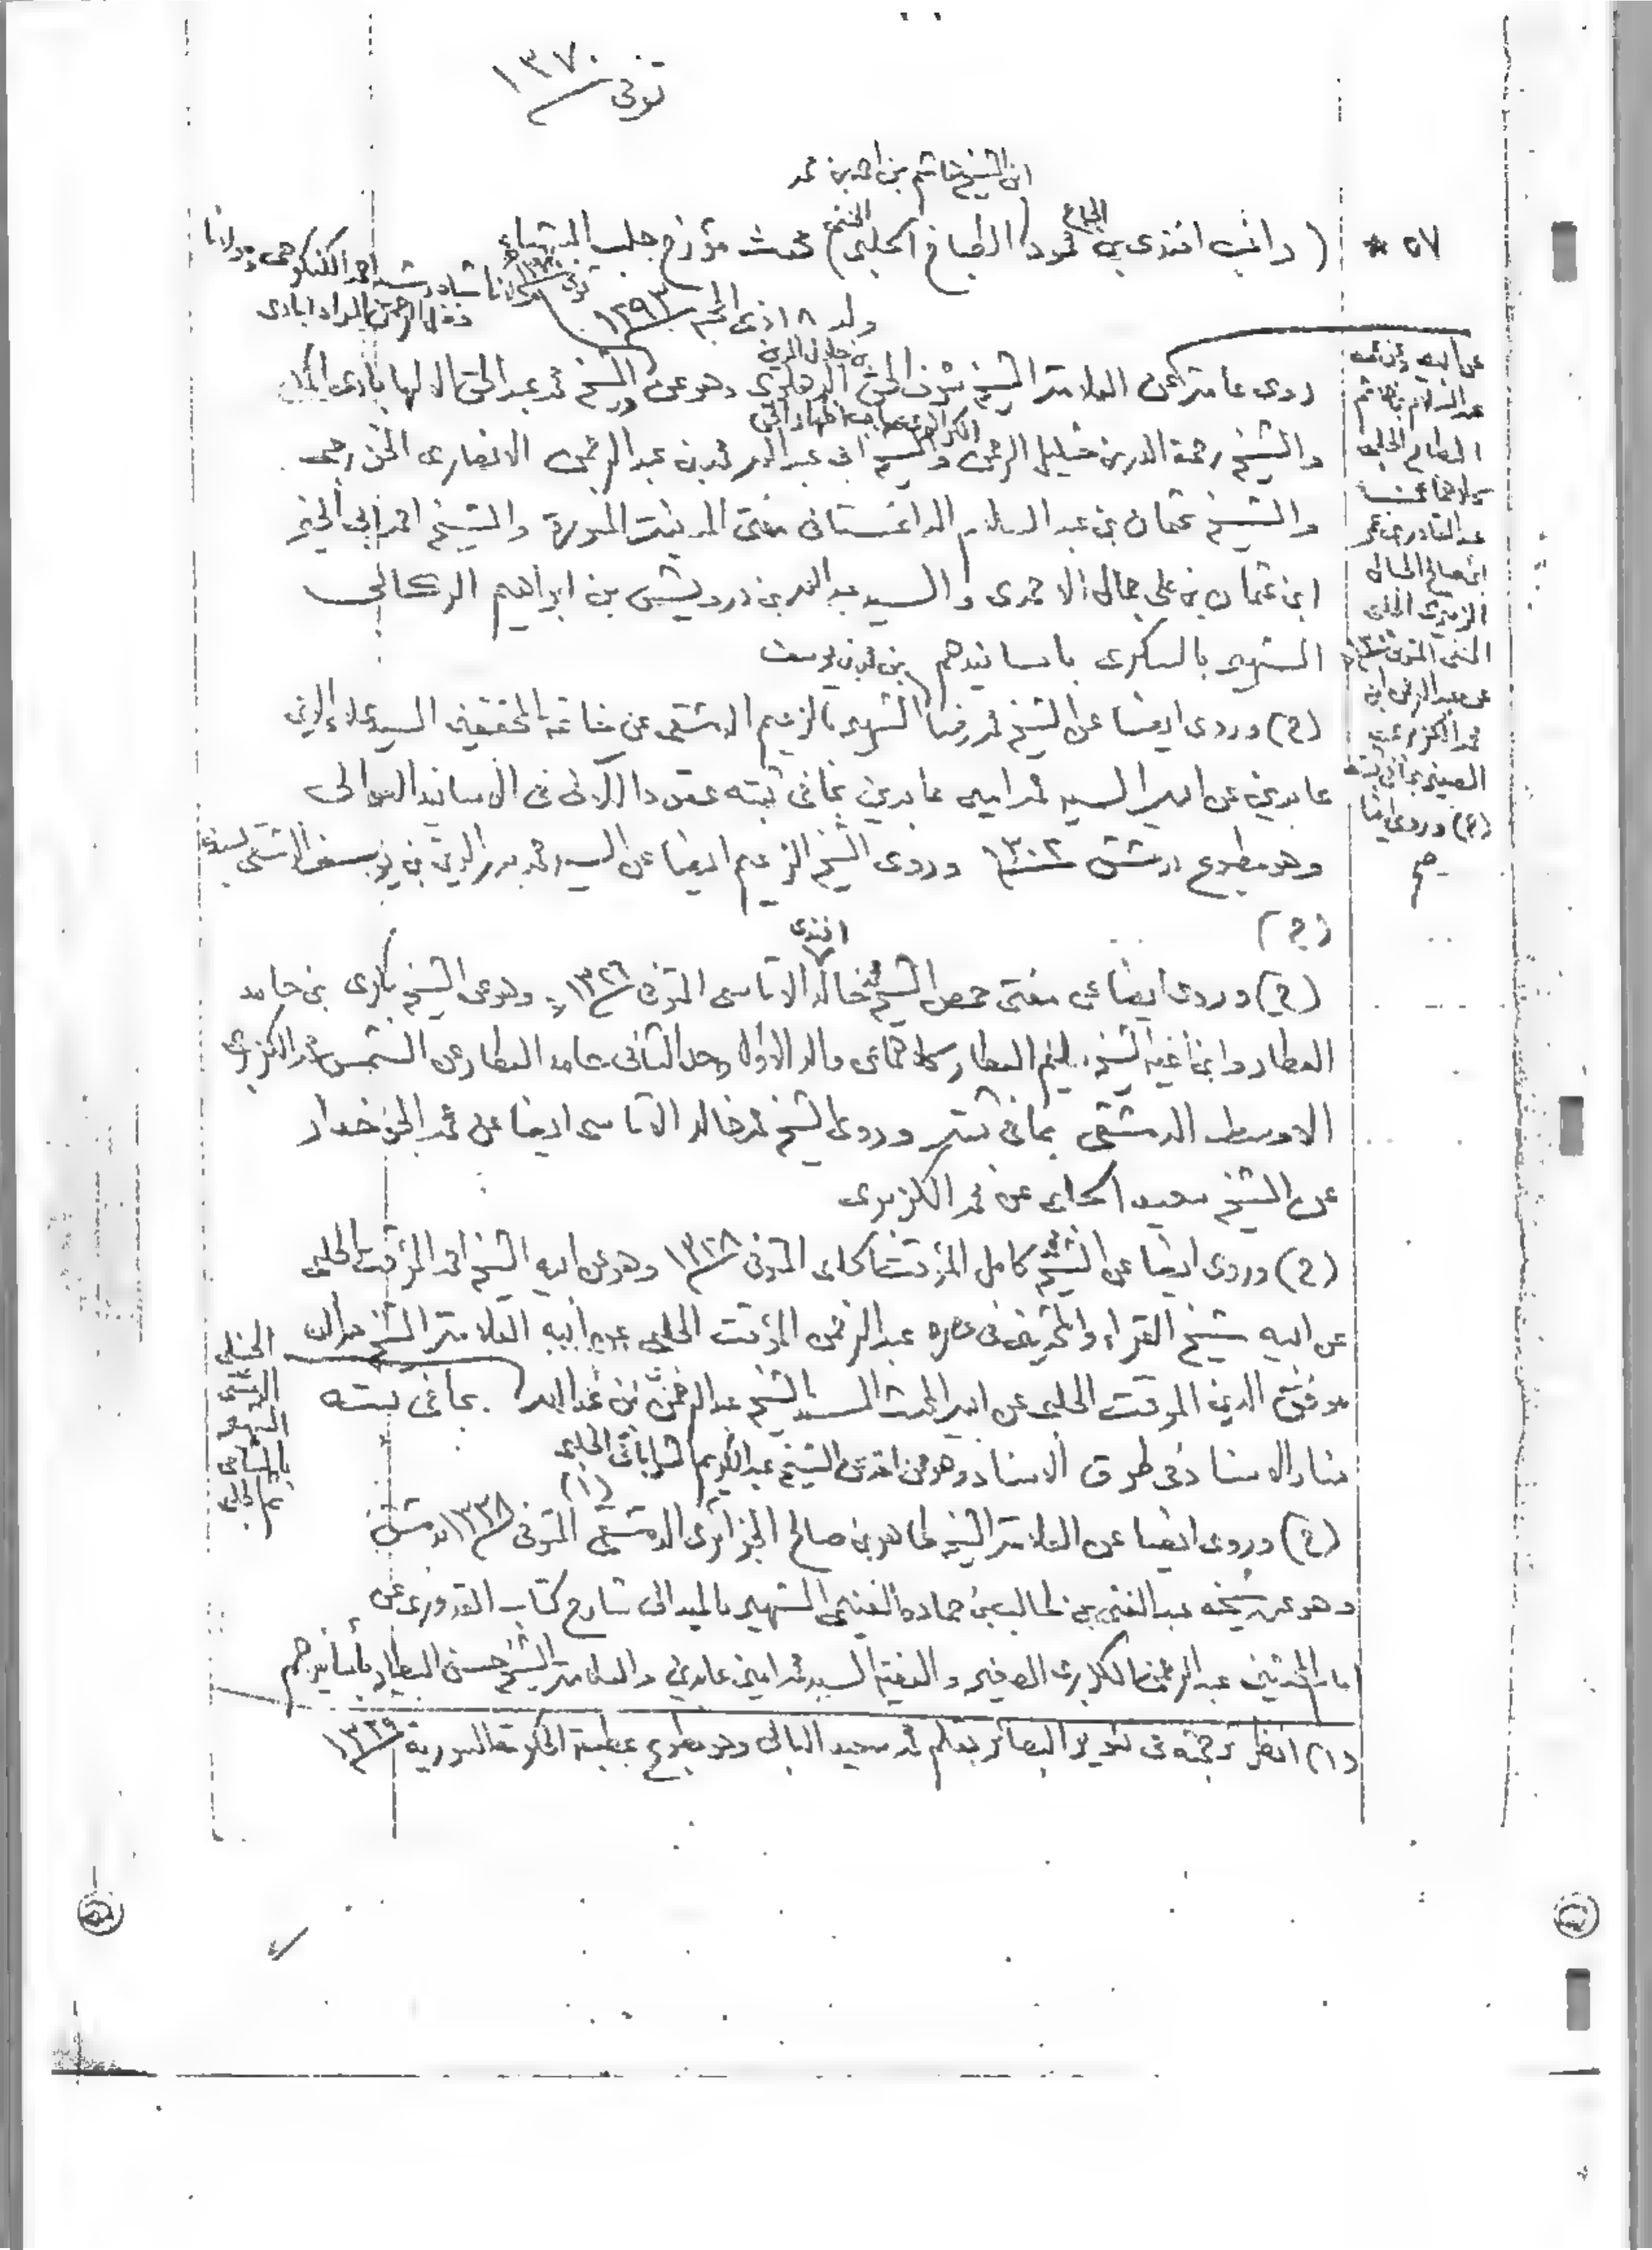 توفى ١٣٧٠
ابن الشيخ هاشم بن احمد بن محمد
٥٧ * ( راغب افندى بن الحاج محمود الطباخ الحلبى الحنفى ) محدث مؤرخ حلب الشهباء
ولد ١٨ ذى الحجة ١٢٩٣ توفى
مولانا شاه رشيد احمد الكنكوهى ومولانا
فضل الرحمن المراد ابادى
روى عامة عن العلامة الشيخ شرف الحق بن جلال الدين الدهلوى وهو عن الشيخ محمد عبد الحق الالهابادى المكى
والشيخ رحمة الله بن خليل الرحمن الكرانوى صاحب اظهار الحق والشيخ ابى عبد الله محمد بن عبد الرحمن الانصارى الخزرجى
والشيخ عثمان بن عبد السلام الداغستانى مفتى المدينة المنورة والشيخ احمد ابى الخير
ابن عثمان بن على جمال الاحمدى والسيد عبد الله بن درويش بن ابراهيم الركابى
الشهير بالسكرى باسانيدهم
بن محمد بن يوسف
(ح) وروى ايضا عن الشيخ محمد رضا الشهير بالزعيم الدمشقى عن خاتمة المحققين السيد علاء الدين
عابدين عن ابيه السيد محمد امين عابدين بما فى ثبته عقود اللآلى فى الاسانيد العوالى
وهو مطبوع بدمشق ١٣٠٢ وروى الشيخ الزعيم ايضا عن السيد محمد بدر الدين بن يوسف الدمشقى بسنده
(ح)
(ح) وروى ايضا عن مفتى حمص الشيخ محمد خالد افندى الاتاسى المتوفى ١٣٢٦ وهو عن الشيخ بكرى بن حامد
العطار وابن اخيه الشيخ سليم العطار كلاهما عن والد الاول وجد الثانى حامد العطار عن الشمس محمد الكزبرى
الاوسط الدمشقى بما فى ثبته وروى الشيخ محمد خالد الاتاسى ايضا عن محمد
عن الشيخ سعيد الحلبى عن محمد الكزبرى
(ح) وروى ايضا عن الشيخ كامل المؤقت الحلبى المتوفى ١٣٣٨ وهو عن ابيه الشيخ احمد المؤقت الحلبى
عن ابيه شيخ القراء والمحدثين فى عصره عبد الرحمن المؤقت الحلبى عن ابيه العلامة الشيخ عبد الله
موفق الدين المؤقت الحلبى عن ابيه المحدث السيد الشيخ عبد الرحمن بن عبد الله بما فى ثبته
منار الاسناد فى طرق الاسناد وهو ممن اخذ عن الشيخ عبد الكريم الشراباتى الحلبى
(١)
(ح) وروى ايضا عن العلامة الشيخ طاهر بن صالح الجزائرى الدمشقى المتوفى ١٣٣٨ بدمشق
وهو عن شيخه عبد الغنى بن طالب بن حمادة الغنيمى الشهير بالميدانى شارح كتاب القدورى عن
امام المحدثين عبد الرحمن الكزبرى الصغير والفقيه السيد محمد امين عابدين والعلامة الشيخ حسن البيطار بأسانيدهم
(١) انظر ترجمته فى تنوير البصائر بقلم محمد سعيد البانى وهو مطبوع بمطبعة الحكومة السورية ١٣٣٩
عن ابيه وعن عمه
عبد السلام بن هاشم
الطباخ الحلبى
كلاهما عن
عبد القادر بن عمر
ابن صالح الحبال
الزبيرى الحلبى
الحنفى المتوفى
عن عبد الرحمن ابن
محمد الكزبرى
الصغير بما فى ثبته
(ح) وروى ايضا
صح
الحنبلى
الدمشقى
بالشامى